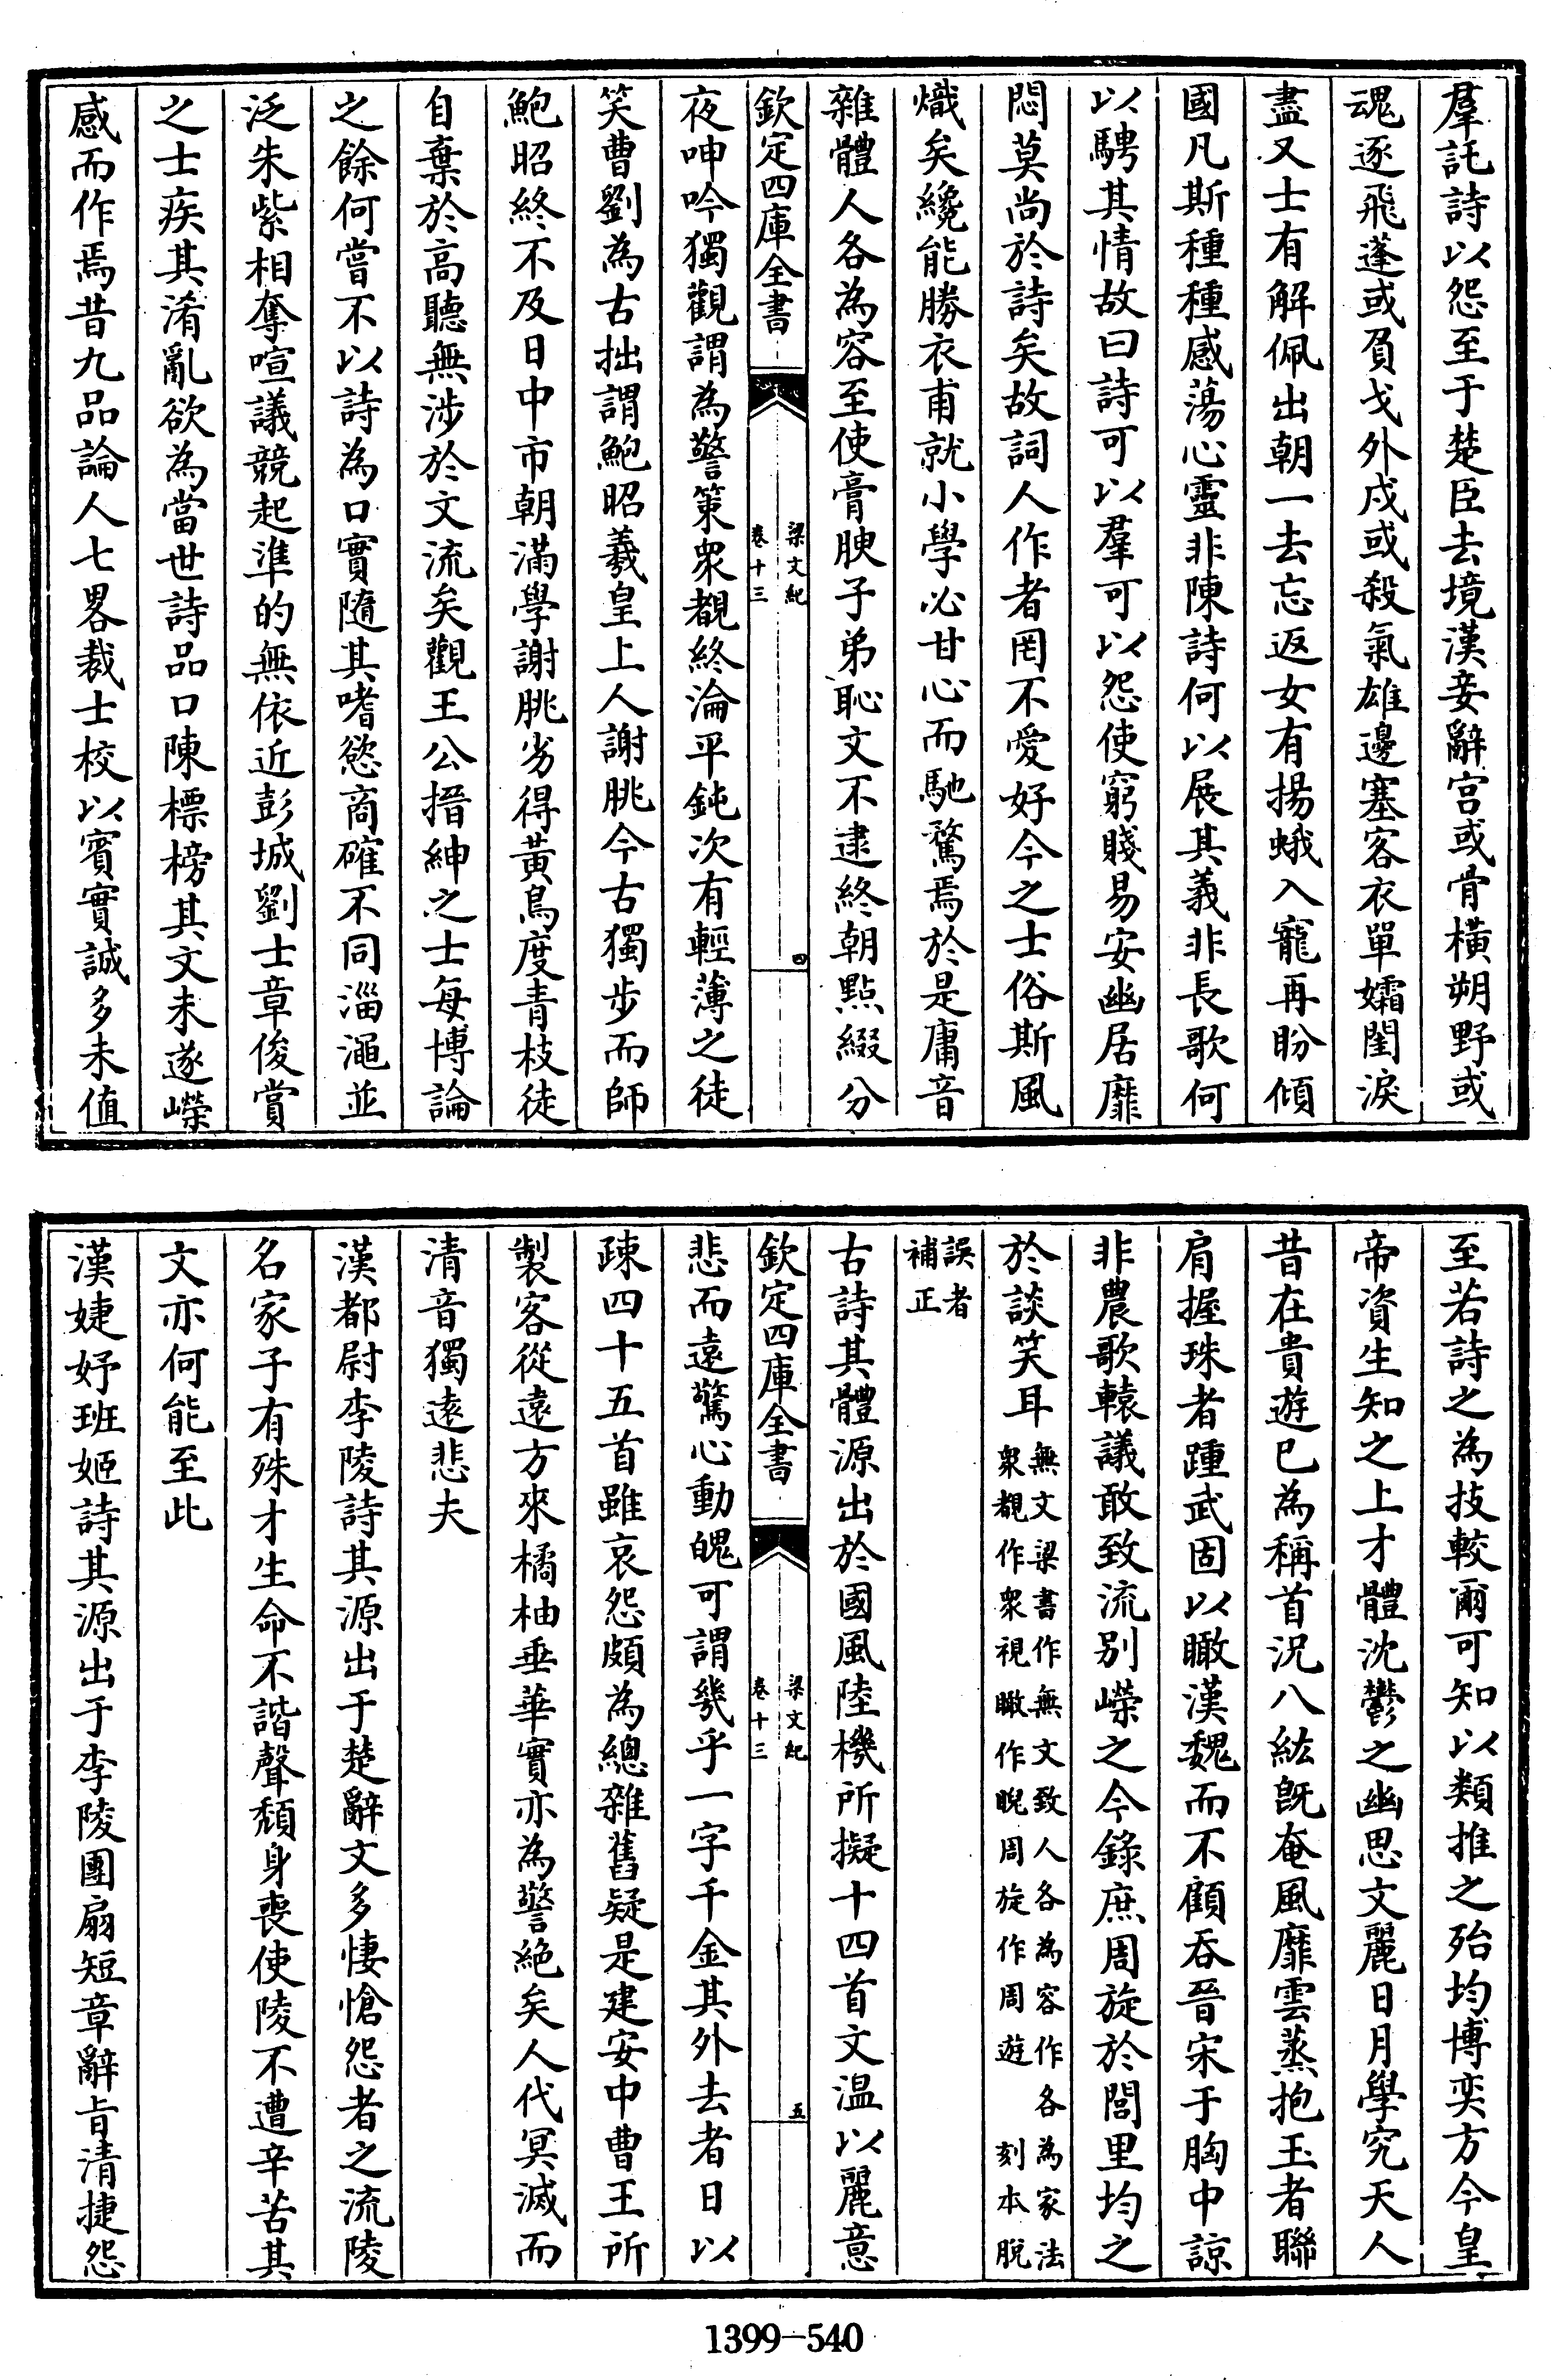 羣託詩以怨至于楚臣去境漢妾辭宫或骨橫朔野或
魂逐飛蓬或負戈外戍或殺氣雄邊塞客衣單孀閨淚
盡又士有解佩出朝一去忘返女有揚蛾入寵再盼傾
國凡斯種種感蕩心靈非陳詩何以展其義非長歌何
以騁其情故曰詩可以羣可以怨使窮賤易安幽居靡
悶莫尚於詩矣故詞人作者罔不愛好今之士俗斯風
熾矣纔能勝衣甫就小學必甘心而馳騖焉於是庸音
雜體人各為容至使膏腴子弟恥文不逮終朝㸃綴分
欽定四庫全書
梁文紀
卷十三
四
夜呻吟獨觀謂為警策衆覩終淪平鈍次有輕薄之徒
笑曹劉為古拙謂鮑昭羲皇上人謝朓今古獨步而師
鮑昭終不及日中市朝滿學謝朓劣得黃鳥度青枝徒
自棄於高聽無涉於文流矣觀王公搢紳之士每博論
之餘何嘗不以詩為口實隨其嗜慾商確不同淄澠並
泛朱紫相奪喧議競起準的無依近彭城劉士章俊賞
之士疾其淆亂欲為當世詩品口陳標榜其文未遂嶸
感而作焉昔九品論人七畧裁士校以賓實誠多未值
至若詩之為技較爾可知以類推之殆均博奕方今皇
帝資生知之上才體沈鬱之幽思文麗日月學究天人
昔在貴遊已為稱首況八紘既奄風靡雲蒸抱玉者聯
肩握珠者踵武固以瞰漢魏而不顧吞晉宋于胸中諒
非農歌轅議敢致流别嶸之今錄庶周旋於閭里均之
於談笑耳
無文梁書作無文致人各為容作各為家法
衆覩作衆視瞰作睨周旋作周遊刻本脫
誤者
補正
古詩其體源出於國風陸機所擬十四首文温以麗意
欽定四庫全書
梁文紀
卷十三
五
悲而遠驚心動魄可謂㡬乎一字千金其外去者日以
疎四十五首雖哀怨頗為總雜舊疑是建安中曹王所
製客從遠方來橘柚垂華實亦為警絶矣人代冥滅而
清音獨遠悲夫
漢都尉李陵詩其源出于楚辭文多悽愴怨者之流陵
名家子有殊才生命不諧聲頹身喪使陵不遭辛苦其
文亦何能至此
漢婕妤班姬詩其源出于李陵團扇短章辭旨清捷怨
1399-540